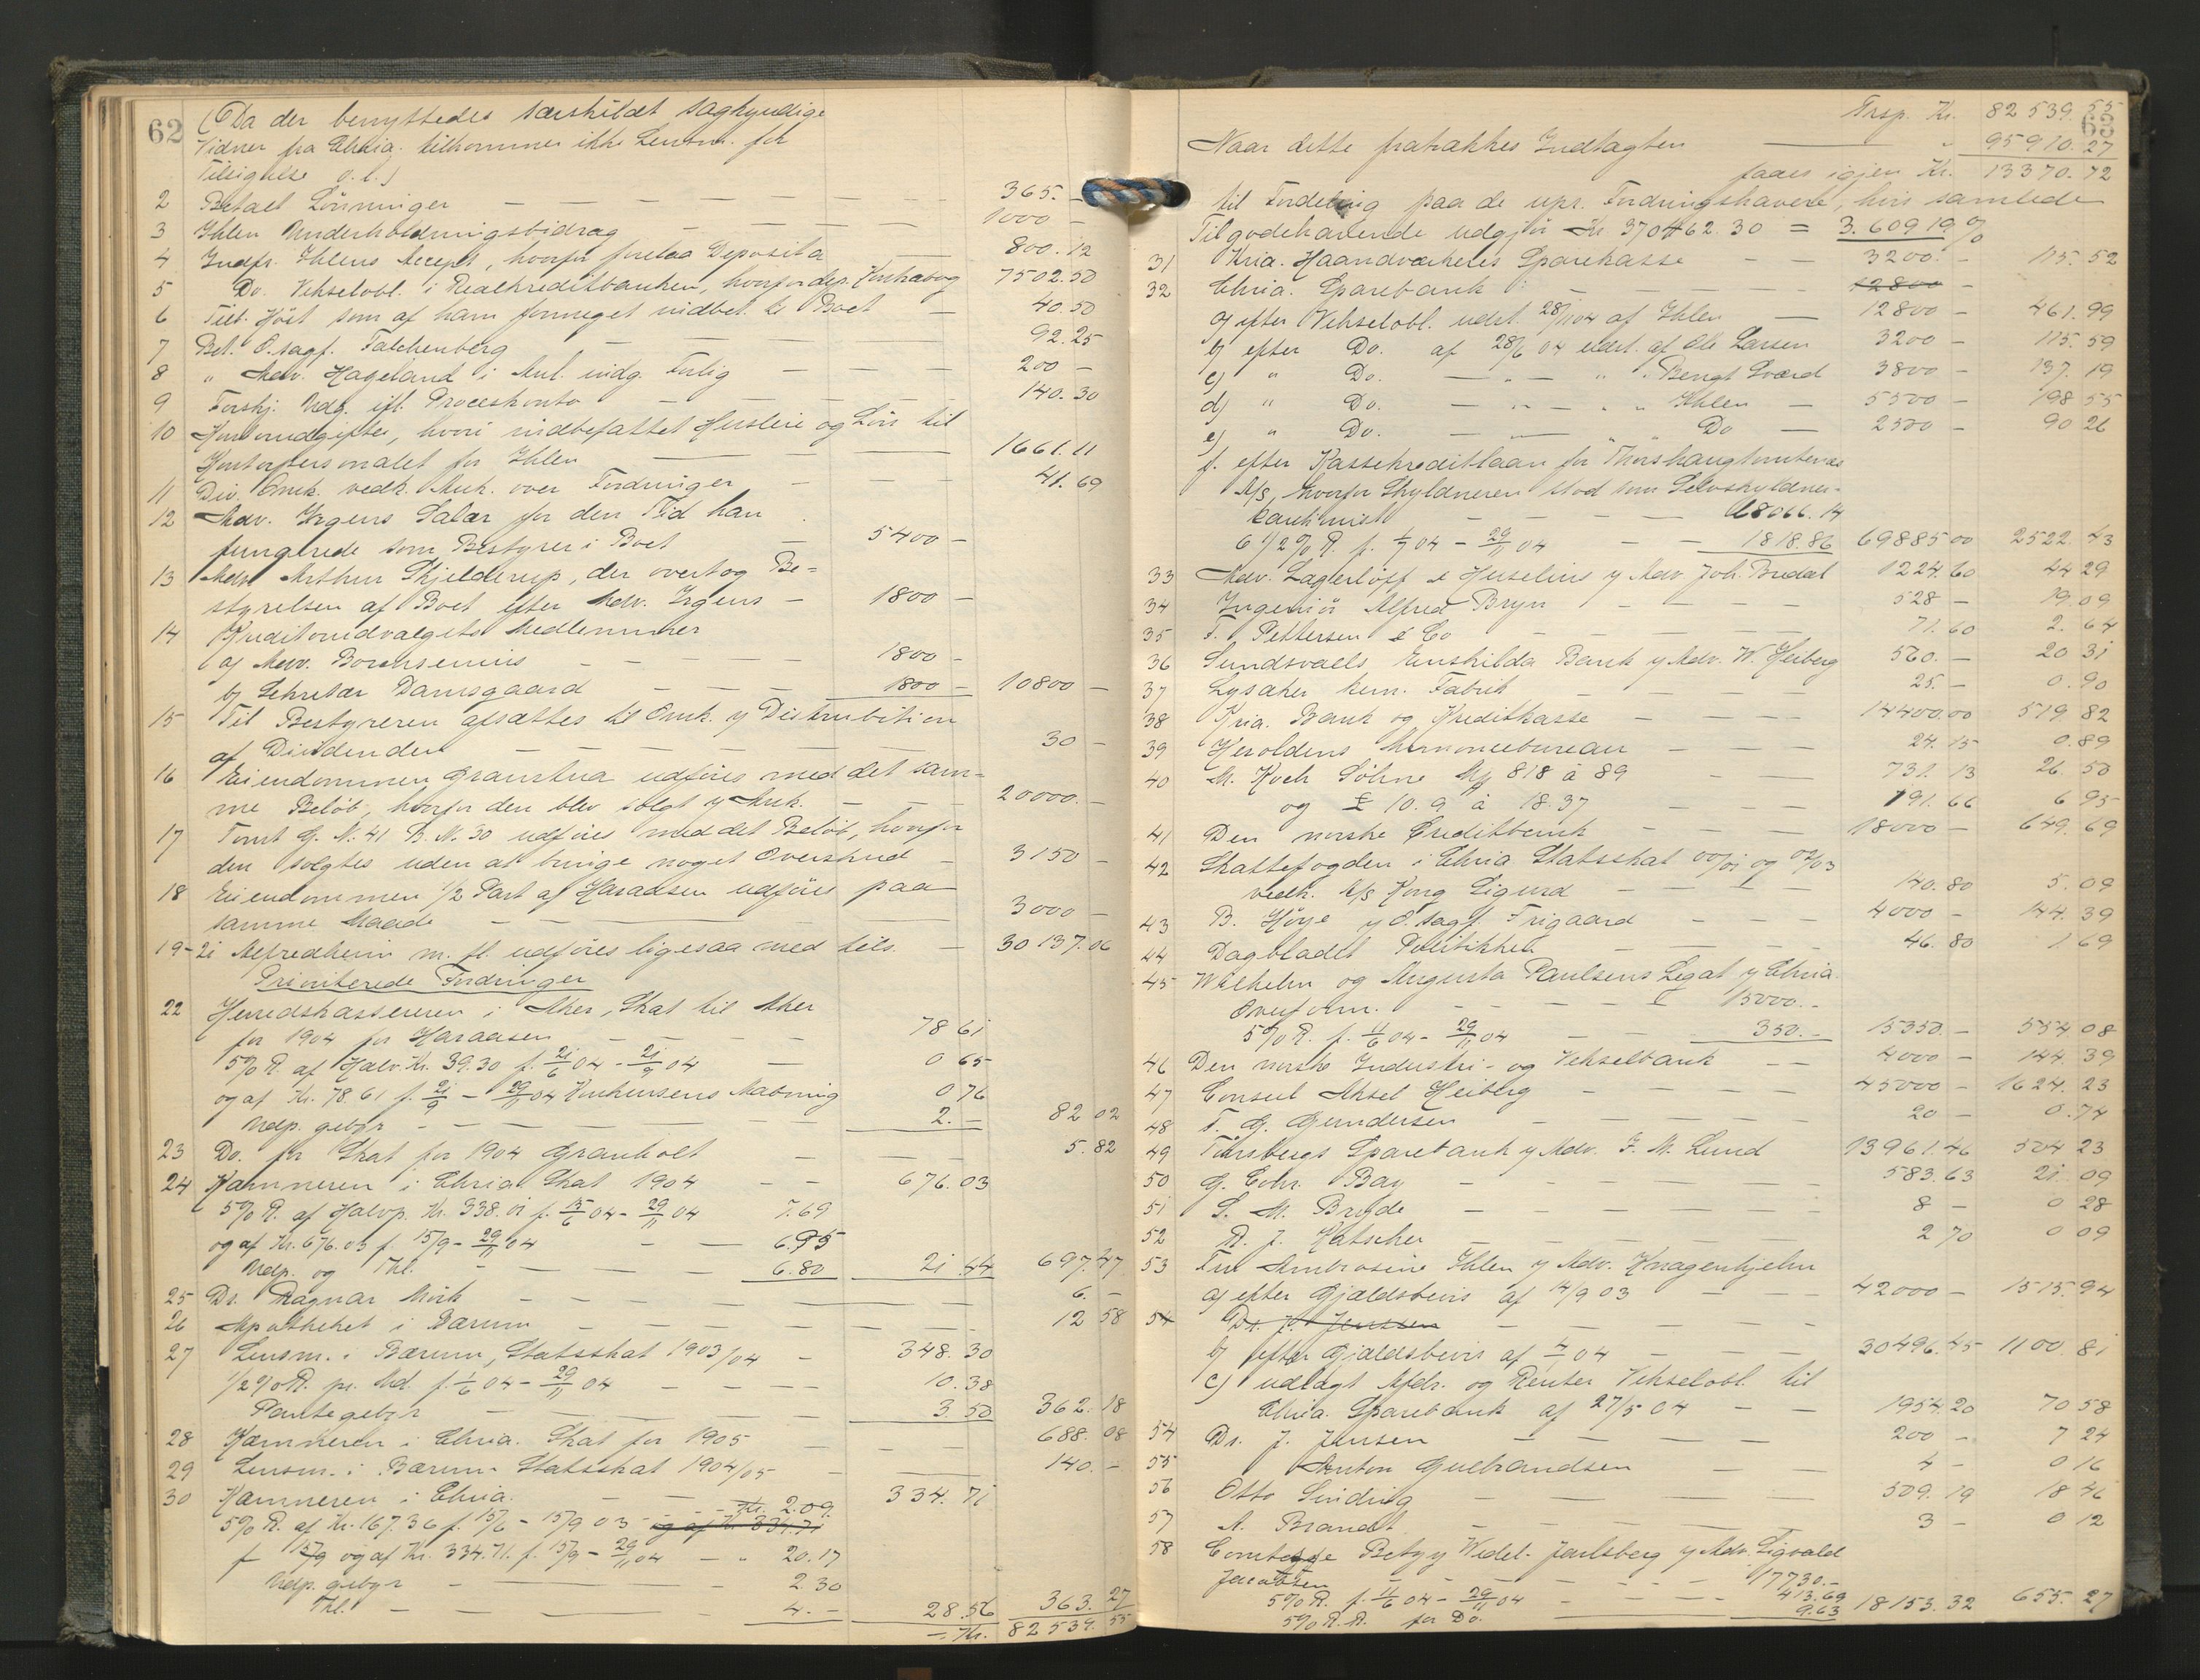 62
(Da der benyttedes særskildt sagkyndige
Vidner fra Chria. tilkommer ikke Lensm. for
Tilsigelse o.l.)
2 Betalt Lönninger — 365. -
3 Ihlen Underholdningsbidrag — 1000 -
4 Indfr. Ihlens Accept, hvorfor forelaa Deposita — 800.12
5 Do. Vekselobl. i Realkreditbanken, hvorfor dep. 7502.50
6 Tilb. Höst som af ham formeget indbet. til Boet — 40.50
7 Bet. O.sagf. Falchenberg — 92.25
8 " Adv. Hageland i Anl. indg. Forlig — 200 -
9 Forskj. Udg. ifl. Proceskonto — 140.30
10 Kontorudgifter, hvori indbefattet Husleie og Lön til
Kontorpersonalet for Ihlen — 1661.11
11 Div. Omk. vedk. Auk. over Fordringer — 41.69
12 Adv. Irgens Salær for den Tid han
fungerede som Bestyrer i Boet — 5400 -
13 Adv. Arthur Skjelderup, der overtog Be=
styrelsen af Boet efter Adv. Irgens — 1800 -
14 Kreditorudvalgets Medlemmer
a) Adv. Borchsenius — 1800 -
b) Sekretær Damsgaard — 1800 - 10800 -
15 Til Bestyreren afsættes til Omk. v Distribution
af Dividenden — 30 -
16 Eiendommen Granstua udföres med det sam=
me Belöb, hvorfor den blev solgt v Auk. — 20000. -
17 Tomt G. N. 41 B. N. 30 udföres med det Belöb, hvorfor
den solgtes uden at bringe noget Overskud — 3150 -
18 Eiendommen 1/2 Part af Haraasen udföres paa
samme Maade — 3000 -
19-21 Alfredheim m. fl. udföres ligesaa med tils. — 30137.06
Prioriterede Fordringer
22 Herredskassereren i Aker, Skat til Aker
for 1904 for Haraasen — 78 61
5% R. af Halv. Kr. 39.30 f. 21/6 04 - 21/9 04 — 0 65
og af Kr. 78.61 f. 21/9 - 29/11 04 — 0 76
Udp. gebyr — 2. - 82 02
23 Do. for Skat for 1904 Granholt — 5.82
24 Kæmneren i Chria Skat 1904 — 676.03
5% R. af Halvp. Kr. 338.01 f. 15/6 04 - 29/11 04 7.69
og af Kr. 676.03 f. 15/9 - 29/11 04 — 6.95
Udp. og Thl. — 6.80 21 44 697.47
25 Dr. Ragnar Mörk — 6. -
26 Apotheket i Bærum — 12 58
27 Lensm. i Bærum, Statsskat 1903/04 — 348.30
1/2% R. pr. Md. f. 1/6 04 - 29/11 04 — 10.38
Pantegebyr — 3.50 362.18
28 Kæmneren i Chria. Skat for 1905 — 688.08
29 Lensm. i Bærum Statsskat 1904/05 — 140. -
30 Kæmneren i Chria. — 334.71
5% R. af Kr. 167.36 f. 15/6 - 15/9 03 — Kr. 2.09. og af Kr 334.71
f 15/9 og af Kr. 334.71. f. 15/9 - 29/11 04 — " 20.17
Udp. gebyr — 2.30
Thl. — 4. - 28.56 363.27
Kr. 82539.55
63
Trsp. Kr. 82539.55
Naar dette fratrækkes Indtægten — " 95910.27
faaes igjen Kr. 13370.72
til Fordeling paa de upr. Fordringshavere, hvis samlede
Tilgodehavende udgjör Kr 370462.30 = 3.60919%
31 Kria. Haandværkeres Sparekasse — 3200. - 115.52
32 Chria. Sparebank : — 12800 -
a) efter Vekselobl. udst. 28/1104 af Ihlen — 12800 - 461.99
b) efter Do. af 28/6 04 udst. af Ole Larsen 3200 - 115.59
c) " Do. — " — " Bengt Sværd 3800 - 137.19
d) " Do. — " — " Ihlen — 5500 - 198 55
e) " Do. — " — " Do — 2500 - 90 26
f. efter Kassekreditlaan for Thorshaugtomternes
A/s, hvorfor Skyldneren stod som Selvskyldner-
kautionist — 68066.14
6 1/2% R. f. 1/7 04 - 29/11 04 — 1818.86 69885 00 2522.43
33 Adv. Lagerlöff & Huselius v Adv Joh. Bredal 1224.60 44 29
34 Ingeniör Alfred Bryn — 528 - 19.09
35 T. Pettersen & Co — 71.60 2.64
36 Sundsvaels Enskilda Bank v Adv. W. Heiberg 560. - 20 31
37 Lysaker kem. Fabrik — 25. - 0.90
38 Kria. Bank og Kreditkasse — 14400.00 519.82
39 Heroldens Annoncebureau — 24.15 0.89
40 M. Koch Söhne Mk 818 à 89 — 731.13 26.50
og £ 10.9 à 18.37 — 191.66 6 95
41 Den norske Creditbank — 18000 - 649.69
42 Skattefogden i Chria Statsskat 00/01 og 02/03
vedk. A/s Kong Sigurd — 140.80 5.09
43 B. Høye v O.sagf. Frigaard — 4000 - 144.39
44 Dagbladet Politikken — 46.80 1.69
45 Wilhelm og Augusta Paulsens Legat v Chria.
Overform. — 15000. -
5% R. f. 11/6 04 - 29/11 04 — 350. - 15350. - 554 08
46 Den norske Industri- og Vekselbank — 4000 - 144 39
47 Consul Aksel Heiberg — 45000 - 1624.23
48 T. G. Gundersen — 20 - 0.74
49 Tönsbergs Sparebank v Adv. F. M. Lund 13961.46 504 23
50 G. Cohr. Bay — 583.63 21 09
51 S. M. Bryde — 8 - 0 28
52 R. J. Katscher — 2 70 0 09
53 Fru Ambrosine Ihlen v Adv. Knagenhjelm
a) efter Gjældsbevis af 14/9 03 — 42000 - 1515.94
54 Dr. J. Jenssen —
b) efter Gjældsbevis af 1/7 04 — 30496.45 1100.81
c) udlagt Afdr. og Renter Vekselobl. til
Chria. Sparebank af 27/5 04 — 1954.20 70 58
54 Dr. J. Jensen — 200 - 7 24
55 Anton Gulbrandsen — 4 - 0 16
56 Otto Sinding — 509.19 18 46
57 A. Brandt — 3 - 0 12
58 Comtesse Betzy Wedel-Jarlsberg v Adv. Sigvald
Jacobsen — 17730. -
5% R. f. 11/6 04 - 29/11 04 — 413.69
5% R.R. for Do. — 9.63 18153.32 655.27